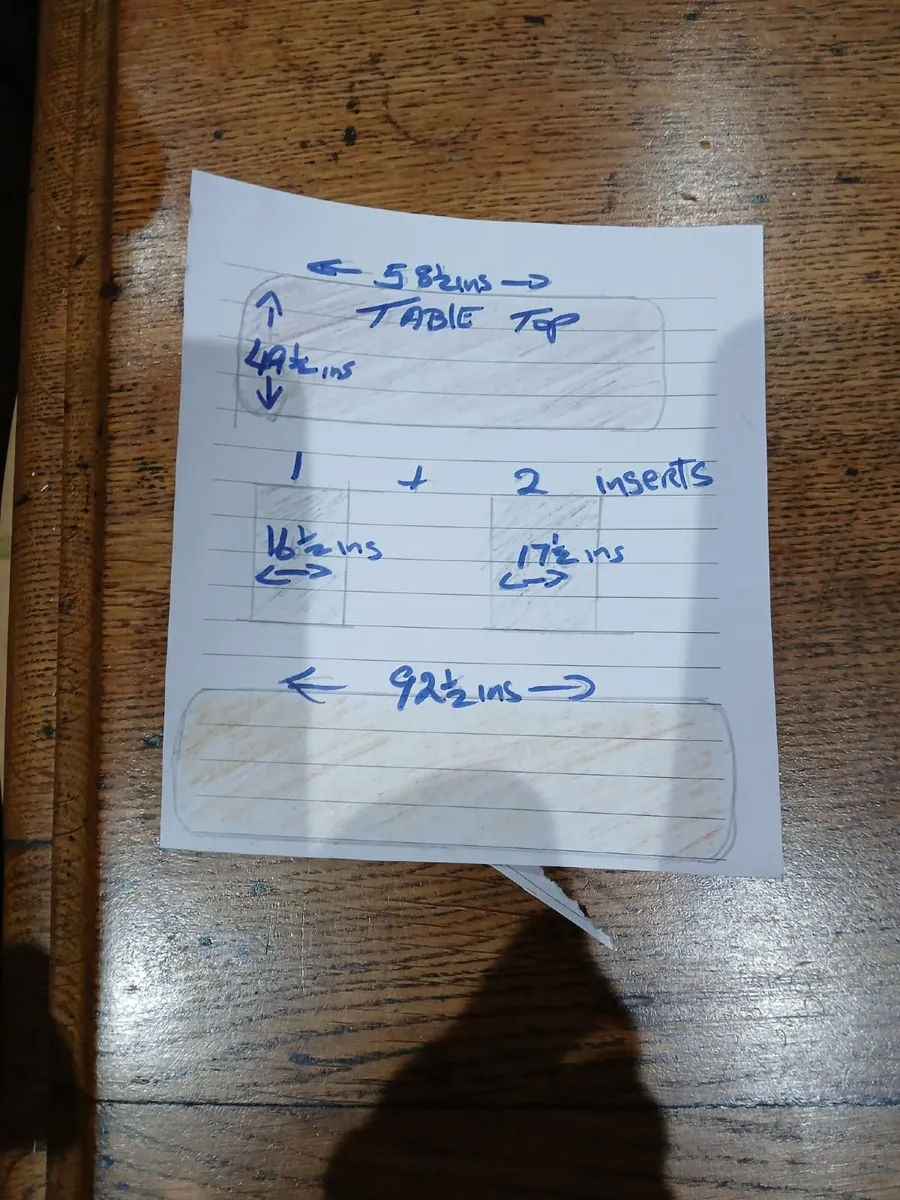 ← 58½ins →
TABLE Top
49½ins
1 + 2 inserts
16½ins 17½ins
← 92½ins →